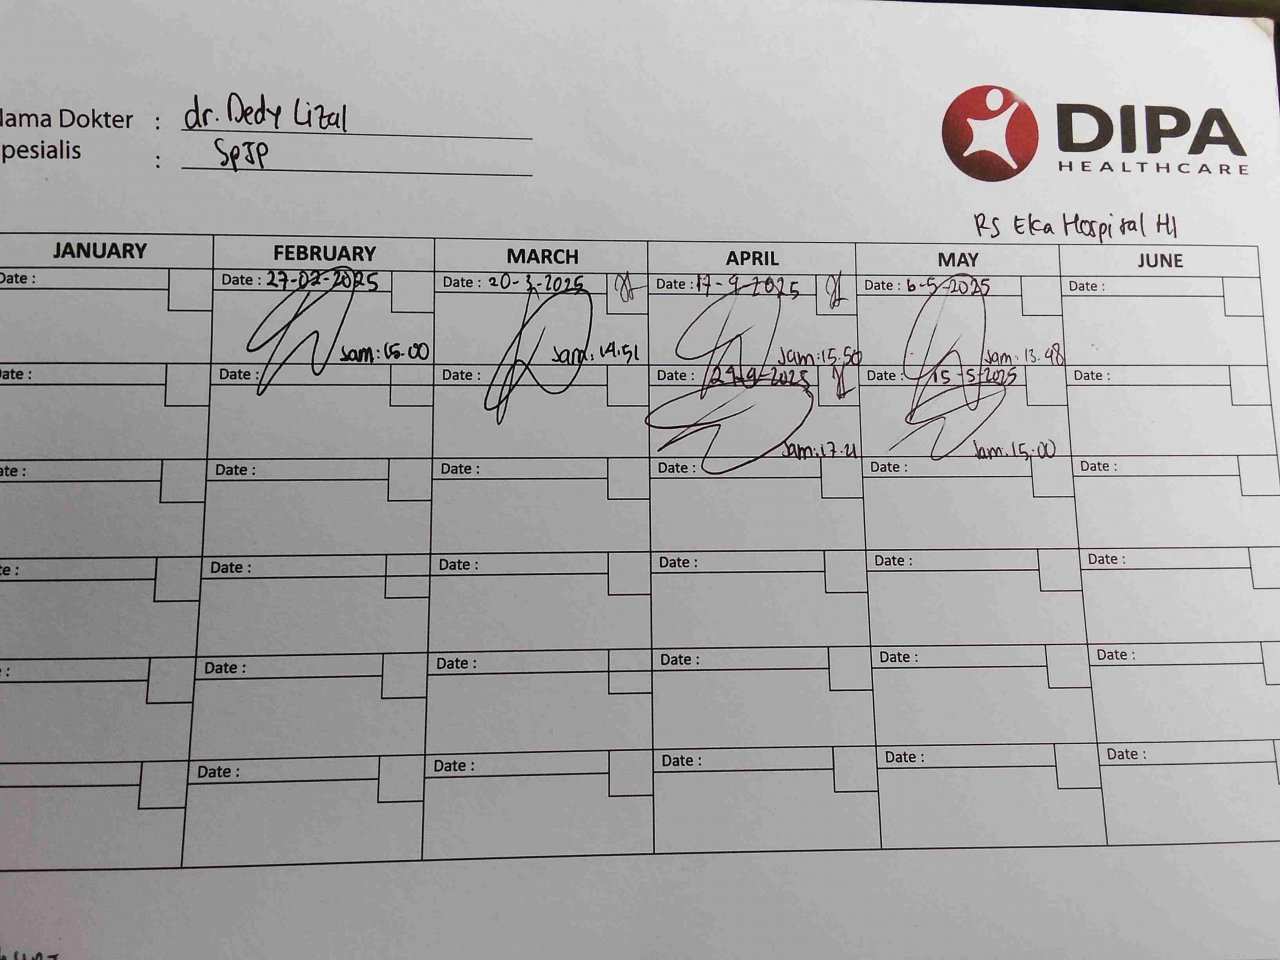 Nama Dokter : dr. Dedy Lizal
Spesialis : SpJP
DIPA
HEALTHCARE
RS Eka Hospital
JANUARY FEBRUARY MARCH APRIL MAY JUNE
Date : Date : 27-02-2025 Date : 20-3-2025 Date : 17-4-2025 Date : 6-5-2025 Date :
Jam: 15.00 Jam: 14.51 Jam: 15.50 Jam: 13.48
Date : Date : Date : Date : 29-4-2025 Date : 15-5-2025 Date :
Jam: 17.21 Jam: 15.00
Date : Date : Date : Date : Date : Date :
Date : Date : Date : Date : Date : Date :
Date : Date : Date : Date : Date : Date :
Date : Date : Date : Date : Date :